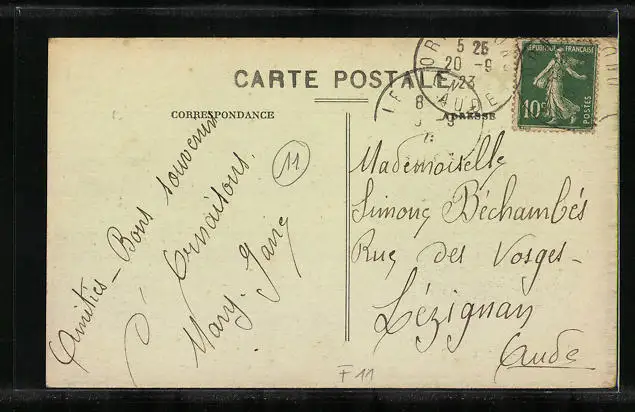 CARTE POSTALE
CORRESPONDANCE
ADRESSE
5 25
20 -9
23
AUDE
REPUBLIQUE FRANÇAISE
10c
POSTES
11
Amitiés - Bons souvenirs
d'Ornaisons.
Mary. Jane
Mademoiselle
Simone Béchambés
Rue des Vosges -
Lézignan
Aude
F 11